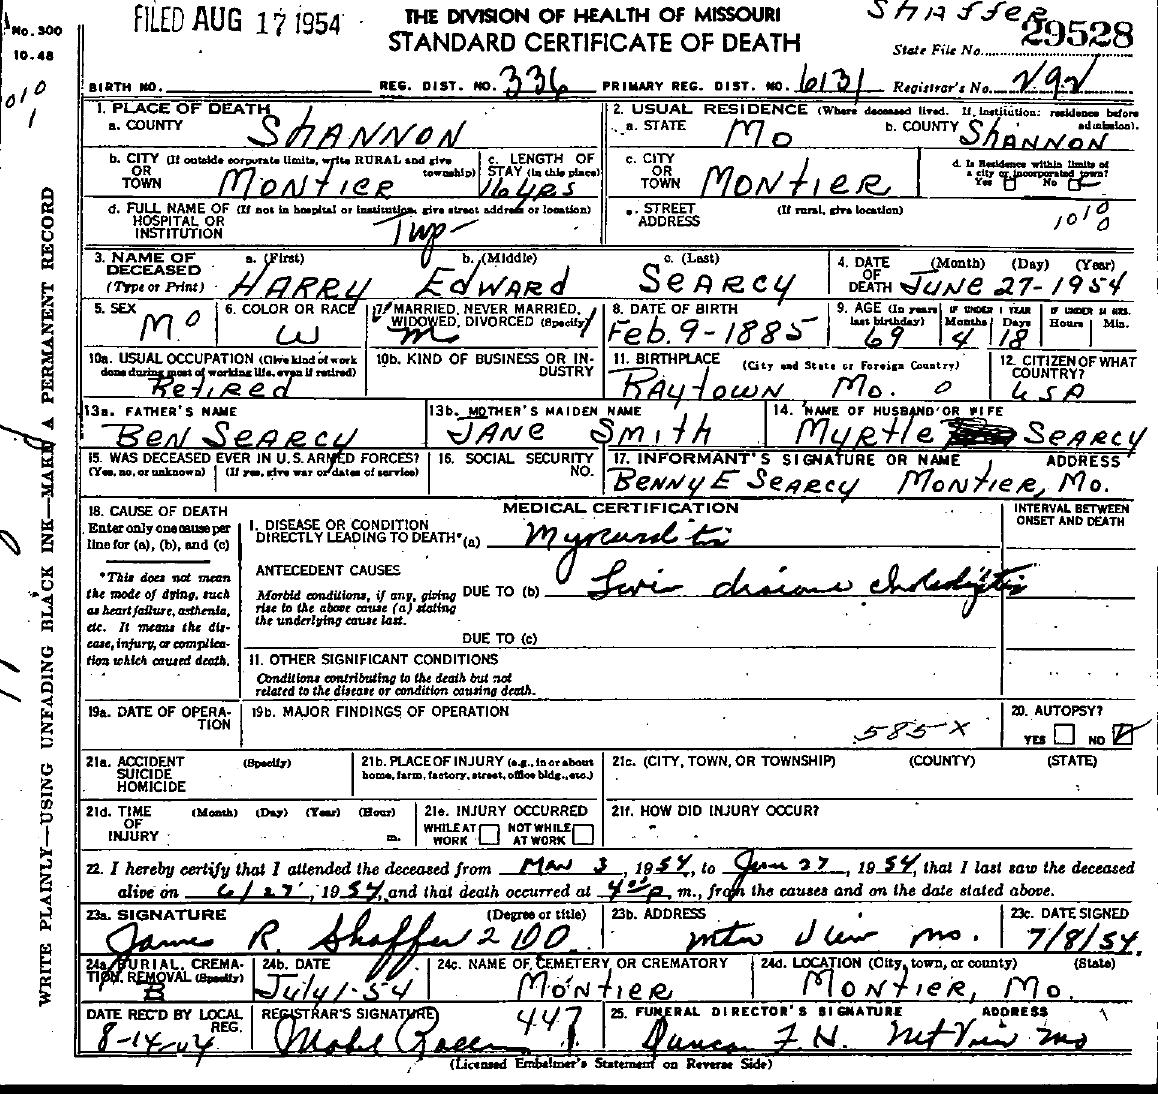 No. 300
10-48
FILED AUG 17 1954
SHAFFER
THE DIVISION OF HEALTH OF MISSOURI
STANDARD CERTIFICATE OF DEATH
State File No. 29528
BIRTH NO. REG. DIST. NO. 336 PRIMARY REG. DIST. NO. 6131 Registrar's No. 292
1. PLACE OF DEATH
a. COUNTY SHANNON
b. CITY (If outside corporate limits, write RURAL and give township)
OR TOWN MONTIER
c. LENGTH OF STAY (in this place) 16 yrs
d. FULL NAME OF (If not in hospital or institution, give street address or location)
HOSPITAL OR INSTITUTION Twp
2. USUAL RESIDENCE (Where deceased lived. If institution: residence before admission).
a. STATE MO b. COUNTY SHANNON
c. CITY OR TOWN MONTIER
d. Is Residence within limits of a city or incorporated town?
Yes No
e. STREET ADDRESS (If rural, give location)
1010
0
3. NAME OF DECEASED (Type or Print)
a. (First) HARRY b. (Middle) EDWARD c. (Last) SEARCY
4. DATE OF DEATH (Month) (Day) (Year) JUNE 27-1954
5. SEX M
6. COLOR OR RACE W
7. MARRIED, NEVER MARRIED, WIDOWED, DIVORCED (Specify) M
8. DATE OF BIRTH Feb. 9-1885
9. AGE (In years last birthday) 69 IF UNDER 1 YEAR Months 4 Days 18 IF UNDER 24 HRS. Hours Min.
10a. USUAL OCCUPATION (Give kind of work done during most of working life, even if retired) Retired
10b. KIND OF BUSINESS OR INDUSTRY
11. BIRTHPLACE (City and State or Foreign Country) RAYTOWN Mo. 0
12. CITIZEN OF WHAT COUNTRY? USA
13a. FATHER'S NAME BEN SEARCY
13b. MOTHER'S MAIDEN NAME JANE SMITH
14. NAME OF HUSBAND OR WIFE MYRTLE SEARCY
15. WAS DECEASED EVER IN U.S. ARMED FORCES?
(Yes, no, or unknown) (If yes, give war or dates of service)
16. SOCIAL SECURITY NO.
17. INFORMANT'S SIGNATURE OR NAME ADDRESS
BENNY E SEARCY MONTIER, Mo.
18. CAUSE OF DEATH
Enter only one cause per line for (a), (b), and (c)
*This does not mean the mode of dying, such as heart failure, asthenia, etc. It means the disease, injury, or complication which caused death.
MEDICAL CERTIFICATION
INTERVAL BETWEEN ONSET AND DEATH
I. DISEASE OR CONDITION DIRECTLY LEADING TO DEATH*(a) Myocarditis
ANTECEDENT CAUSES
Morbid conditions, if any, giving rise to the above cause (a) stating the underlying cause last.
DUE TO (b) Liver disease
DUE TO (c)
11. OTHER SIGNIFICANT CONDITIONS
Conditions contributing to the death but not related to the disease or condition causing death.
19a. DATE OF OPERATION
19b. MAJOR FINDINGS OF OPERATION
585X
20. AUTOPSY?
YES NO
21a. ACCIDENT SUICIDE HOMICIDE (Specify)
21b. PLACE OF INJURY (e.g., in or about home, farm, factory, street, office bldg., etc.)
21c. (CITY, TOWN, OR TOWNSHIP) (COUNTY) (STATE)
21d. TIME OF INJURY (Month) (Day) (Year) (Hour) m.
21e. INJURY OCCURRED
WHILE AT WORK NOT WHILE AT WORK
21f. HOW DID INJURY OCCUR?
22. I hereby certify that I attended the deceased from Mar 3, 1954, to June 27, 1954, that I last saw the deceased
alive on 6/27, 1954, and that death occurred at 4 00 p m., from the causes and on the date stated above.
23a. SIGNATURE (Degree or title)
James R. Shaffer
23b. ADDRESS Mtn View Mo.
23c. DATE SIGNED 7/8/54
24a. BURIAL, CREMATION, REMOVAL (Specify) B
24b. DATE July 1-54
24c. NAME OF CEMETERY OR CREMATORY MONTIER
24d. LOCATION (City, town, or county) (State) MONTIER, Mo.
DATE REC'D BY LOCAL REG.
REGISTRAR'S SIGNATURE Mabel 447
25. FUNERAL DIRECTOR'S SIGNATURE ADDRESS
Duncan F.H. Mt View Mo
(Licensed Embalmer's Statement on Reverse Side)
WRITE PLAINLY—USING UNFADING BLACK INK—MAKE A PERMANENT RECORD